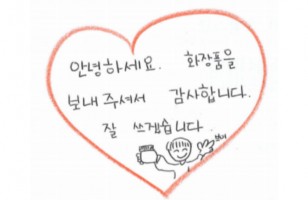 안녕하세요. 화장품을
보내 주셔서 감사합니다.
잘 쓰겠습니다.